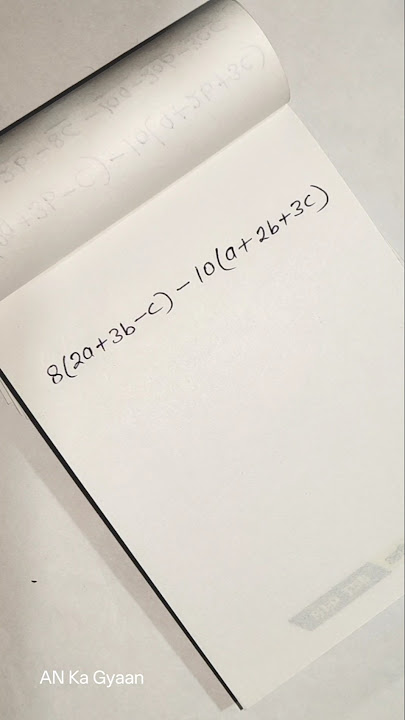 8(2a+3b-c)-10(a+2b+3c)
AN Ka Gyaan